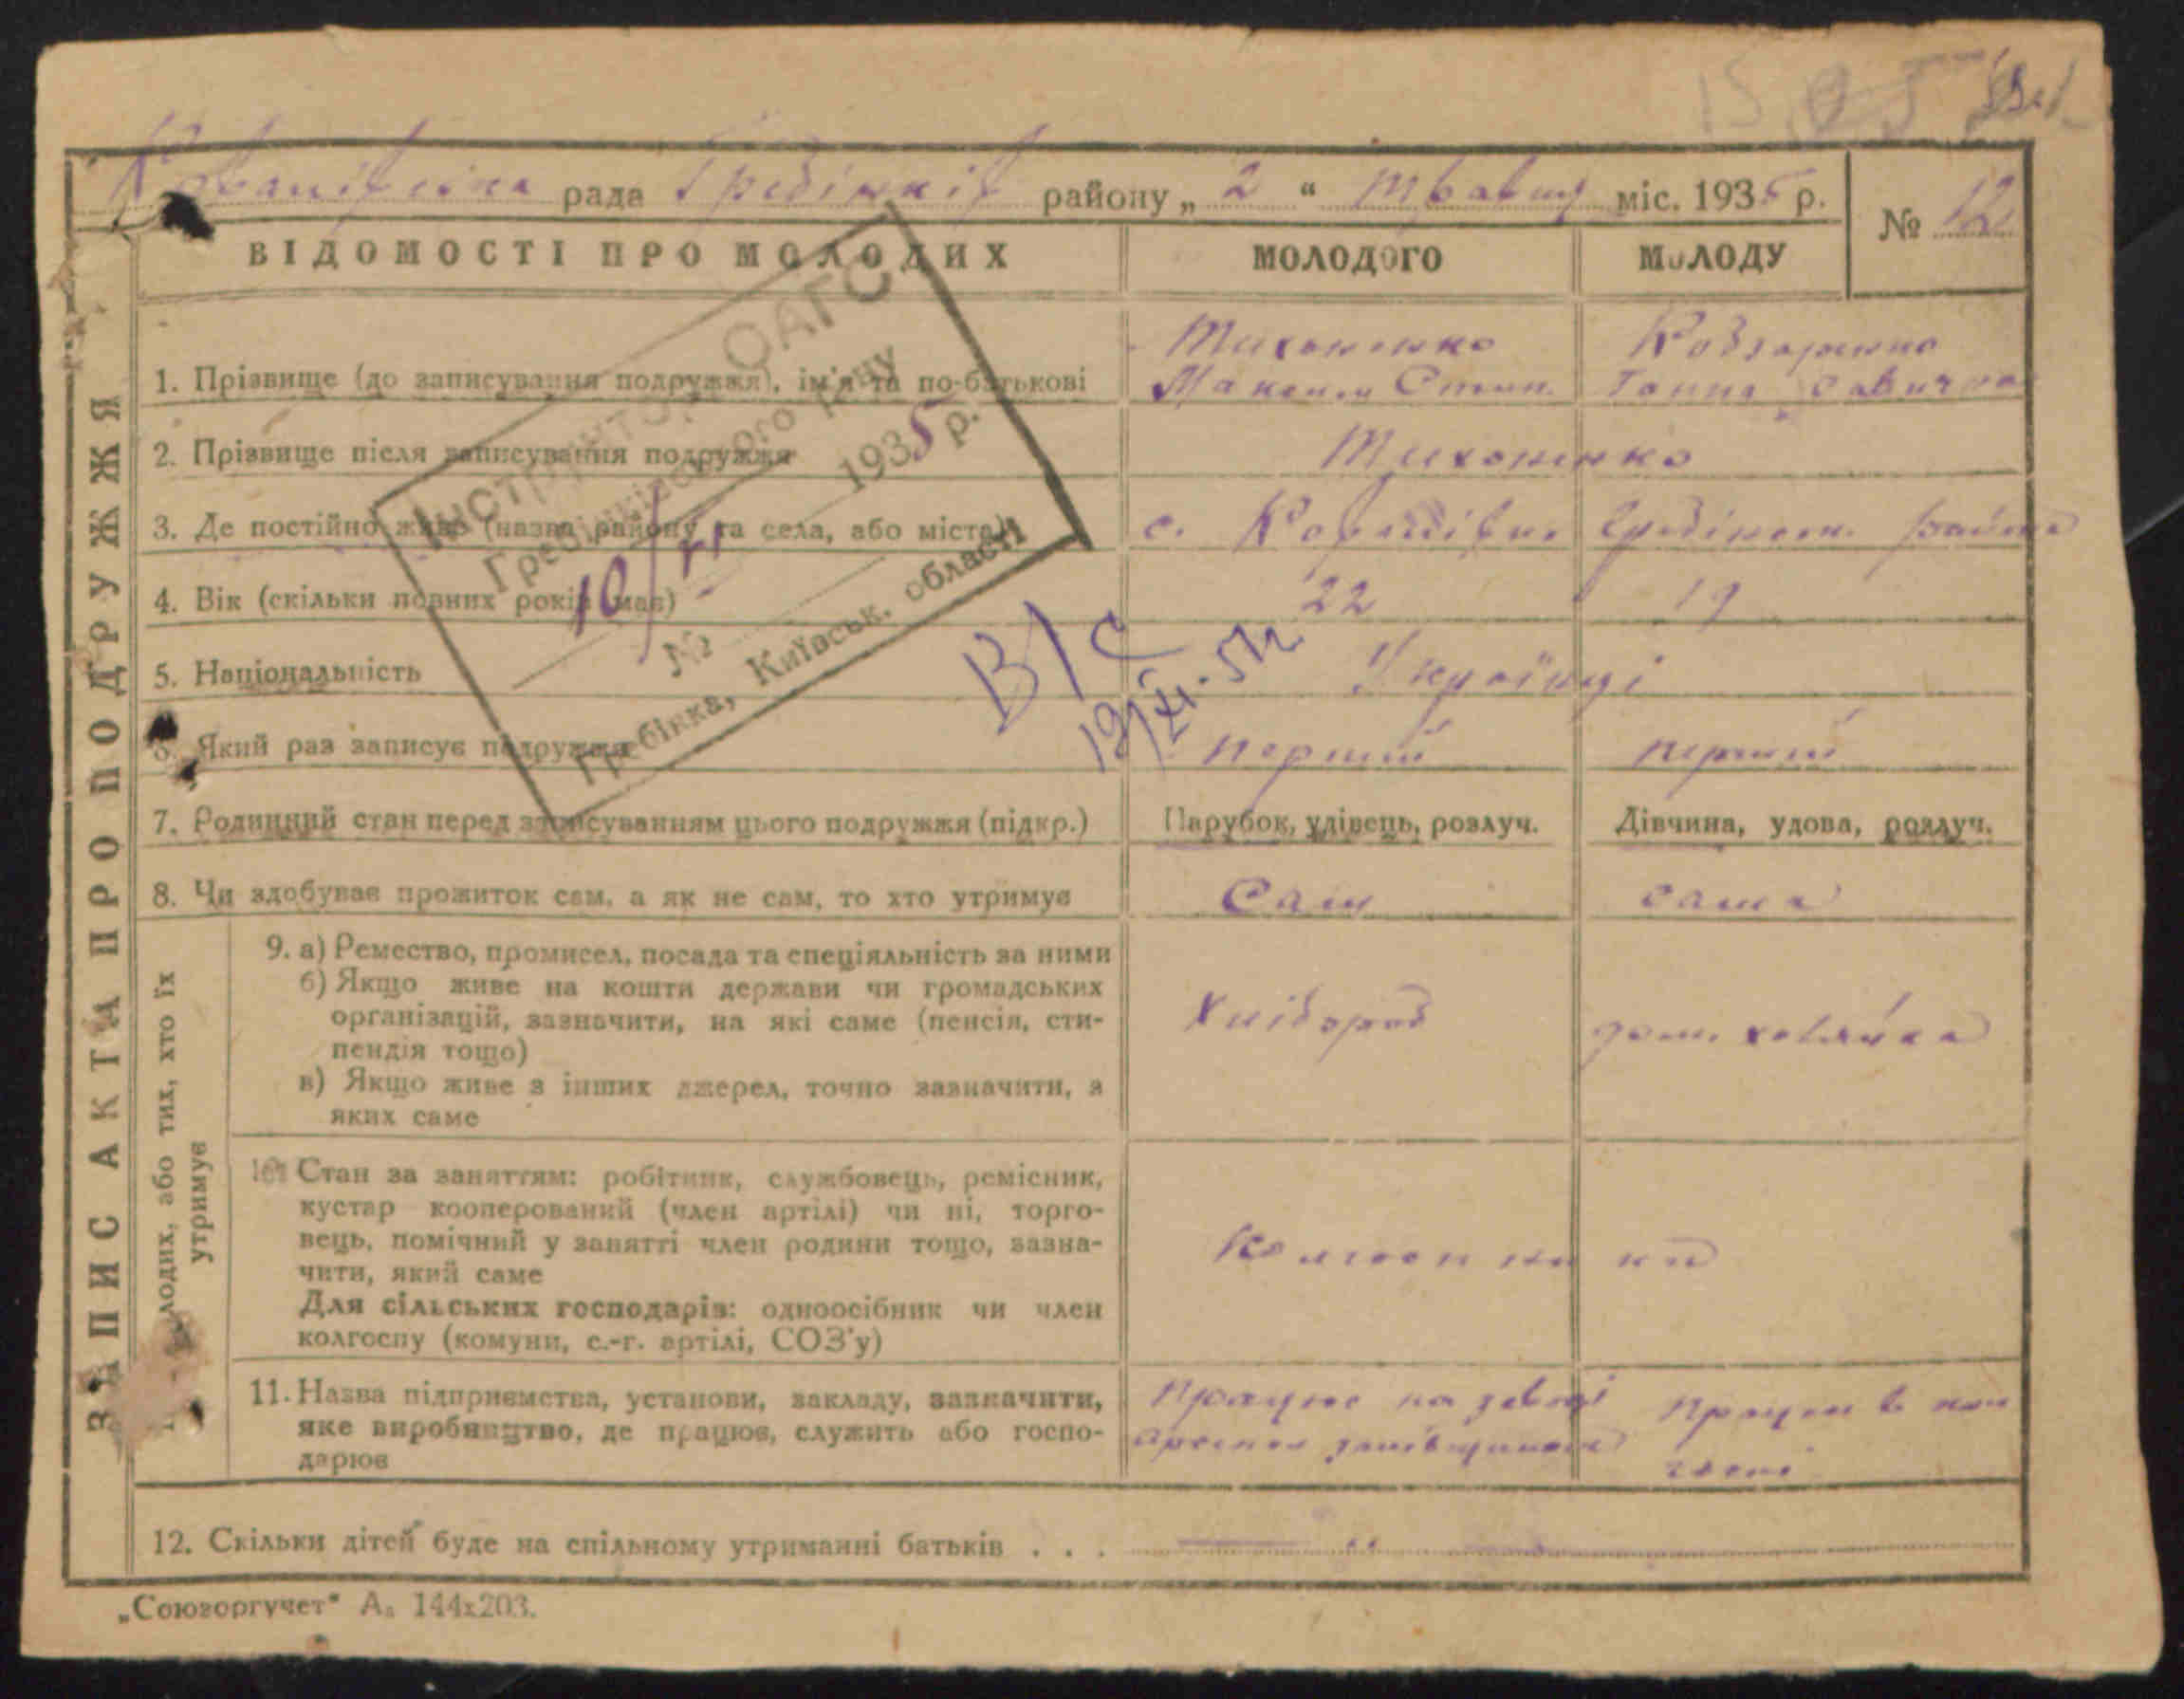 рада Гребінків району „ 2 “ травня міс. 1935 р.
№ 12
ВІДОМОСТІ ПРО МОЛОДИХ
МОЛОДОГО
МОЛОДУ
ЗАПИС АКТА ПРО ПОДРУЖЖЯ
1. Прізвище (до записування подружжя), ім'я та по-батькові
Тихоненко
Максим Степ.
Ганна Савична
2. Прізвище після записування подружжя
Тихоненко
3. Де постійно живе (назва району та села, або міста)
с.
4. Вік (скільки повних років має)
22
19
5. Національність
Українці
6. Який раз записує подружжя
перший
перший
7. Родинний стан перед записуванням цього подружжя (підкр.)
Парубок, удівець, розлуч.
Дівчина, удова, розлуч.
8. Чи здобуває прожиток сам, а як не сам, то хто утримує
Сам
сама
лодих, або тих, хто їх
утримує
9. а) Ремество, промисел, посада та спеціяльність за ними
б) Якщо живе на кошти держави чи громадських
організацій, зазначити, на які саме (пенсія, сти-
пендія тощо)
в) Якщо живе з інших джерел, точно зазначити, з
яких саме
Хлібороб
дом. хазяйка
10. Стан за заняттям: робітник, службовець, ремісник,
кустар кооперований (член артілі) чи ні, торго-
вець, помічний у занятті член родини тощо, зазна-
чити, який саме
Для сільських господарів: одноосібник чи член
колгоспу (комуни, с.-г. артілі, СОЗ'у)
Колгоспники
11. Назва підприємства, установи, закладу, зазначити,
яке виробництво, де працює, служить або госпо-
дарює
Працює на заводі
Працює в кол
госпі
12. Скільки дітей буде на спільному утриманні батьків . . .
— " —
„Союзоргучет" А₅ 144х203.
Інструктор ОАГС
Гребінківського РВЦ
10/VI 1935 р.
№
Гребінка, Київськ. області
В/С
19/XI-51г